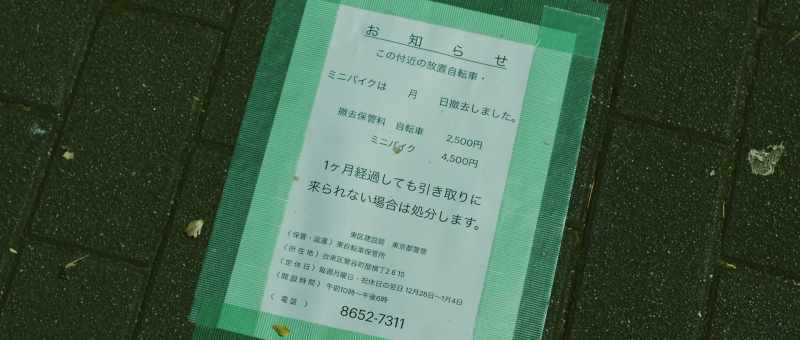 お知らせ
この付近の放置自転車・
ミニバイクは　月　日撤去しました。
撤去保管料　自転車　2,500円
ミニバイク　4,500円
1ヶ月経過しても引き取りに
来られない場合は処分します。
東区建設局　東京都警察
（保管・返還）東自転車保管所
（所在地）台東区 2 6 10
（定休日）毎週月曜日・祝休日の翌日 12月28日〜1月4日
（開設時間）午前10時〜午後6時
（電話）　8652-7311